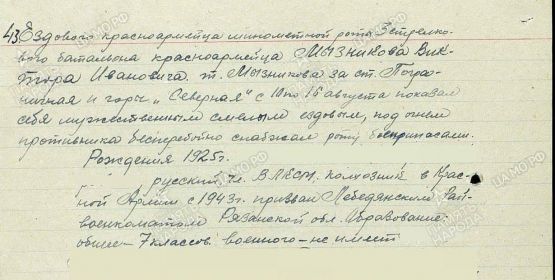 43 Ездового красноармейца минометной роты 3 стрелко-
вого батальона красноармейца Мызникова Вик-
тора Ивановича. т. Мызников за ст. Погра-
ничная и горы "Северная" с 10 по 16 августа показал
себя мужественным смелым ездовым, под огнем
противника бесперебойно снабжал роту боеприпасами.
Рождения 1925 г.
русский чл. ВЛКСМ, колхозник в Крас-
ной Армии с 1943 г. призван Лебедянским Рай-
военкоматом Рязанской обл. Образование:
общее - 7 классов военного - не имеет